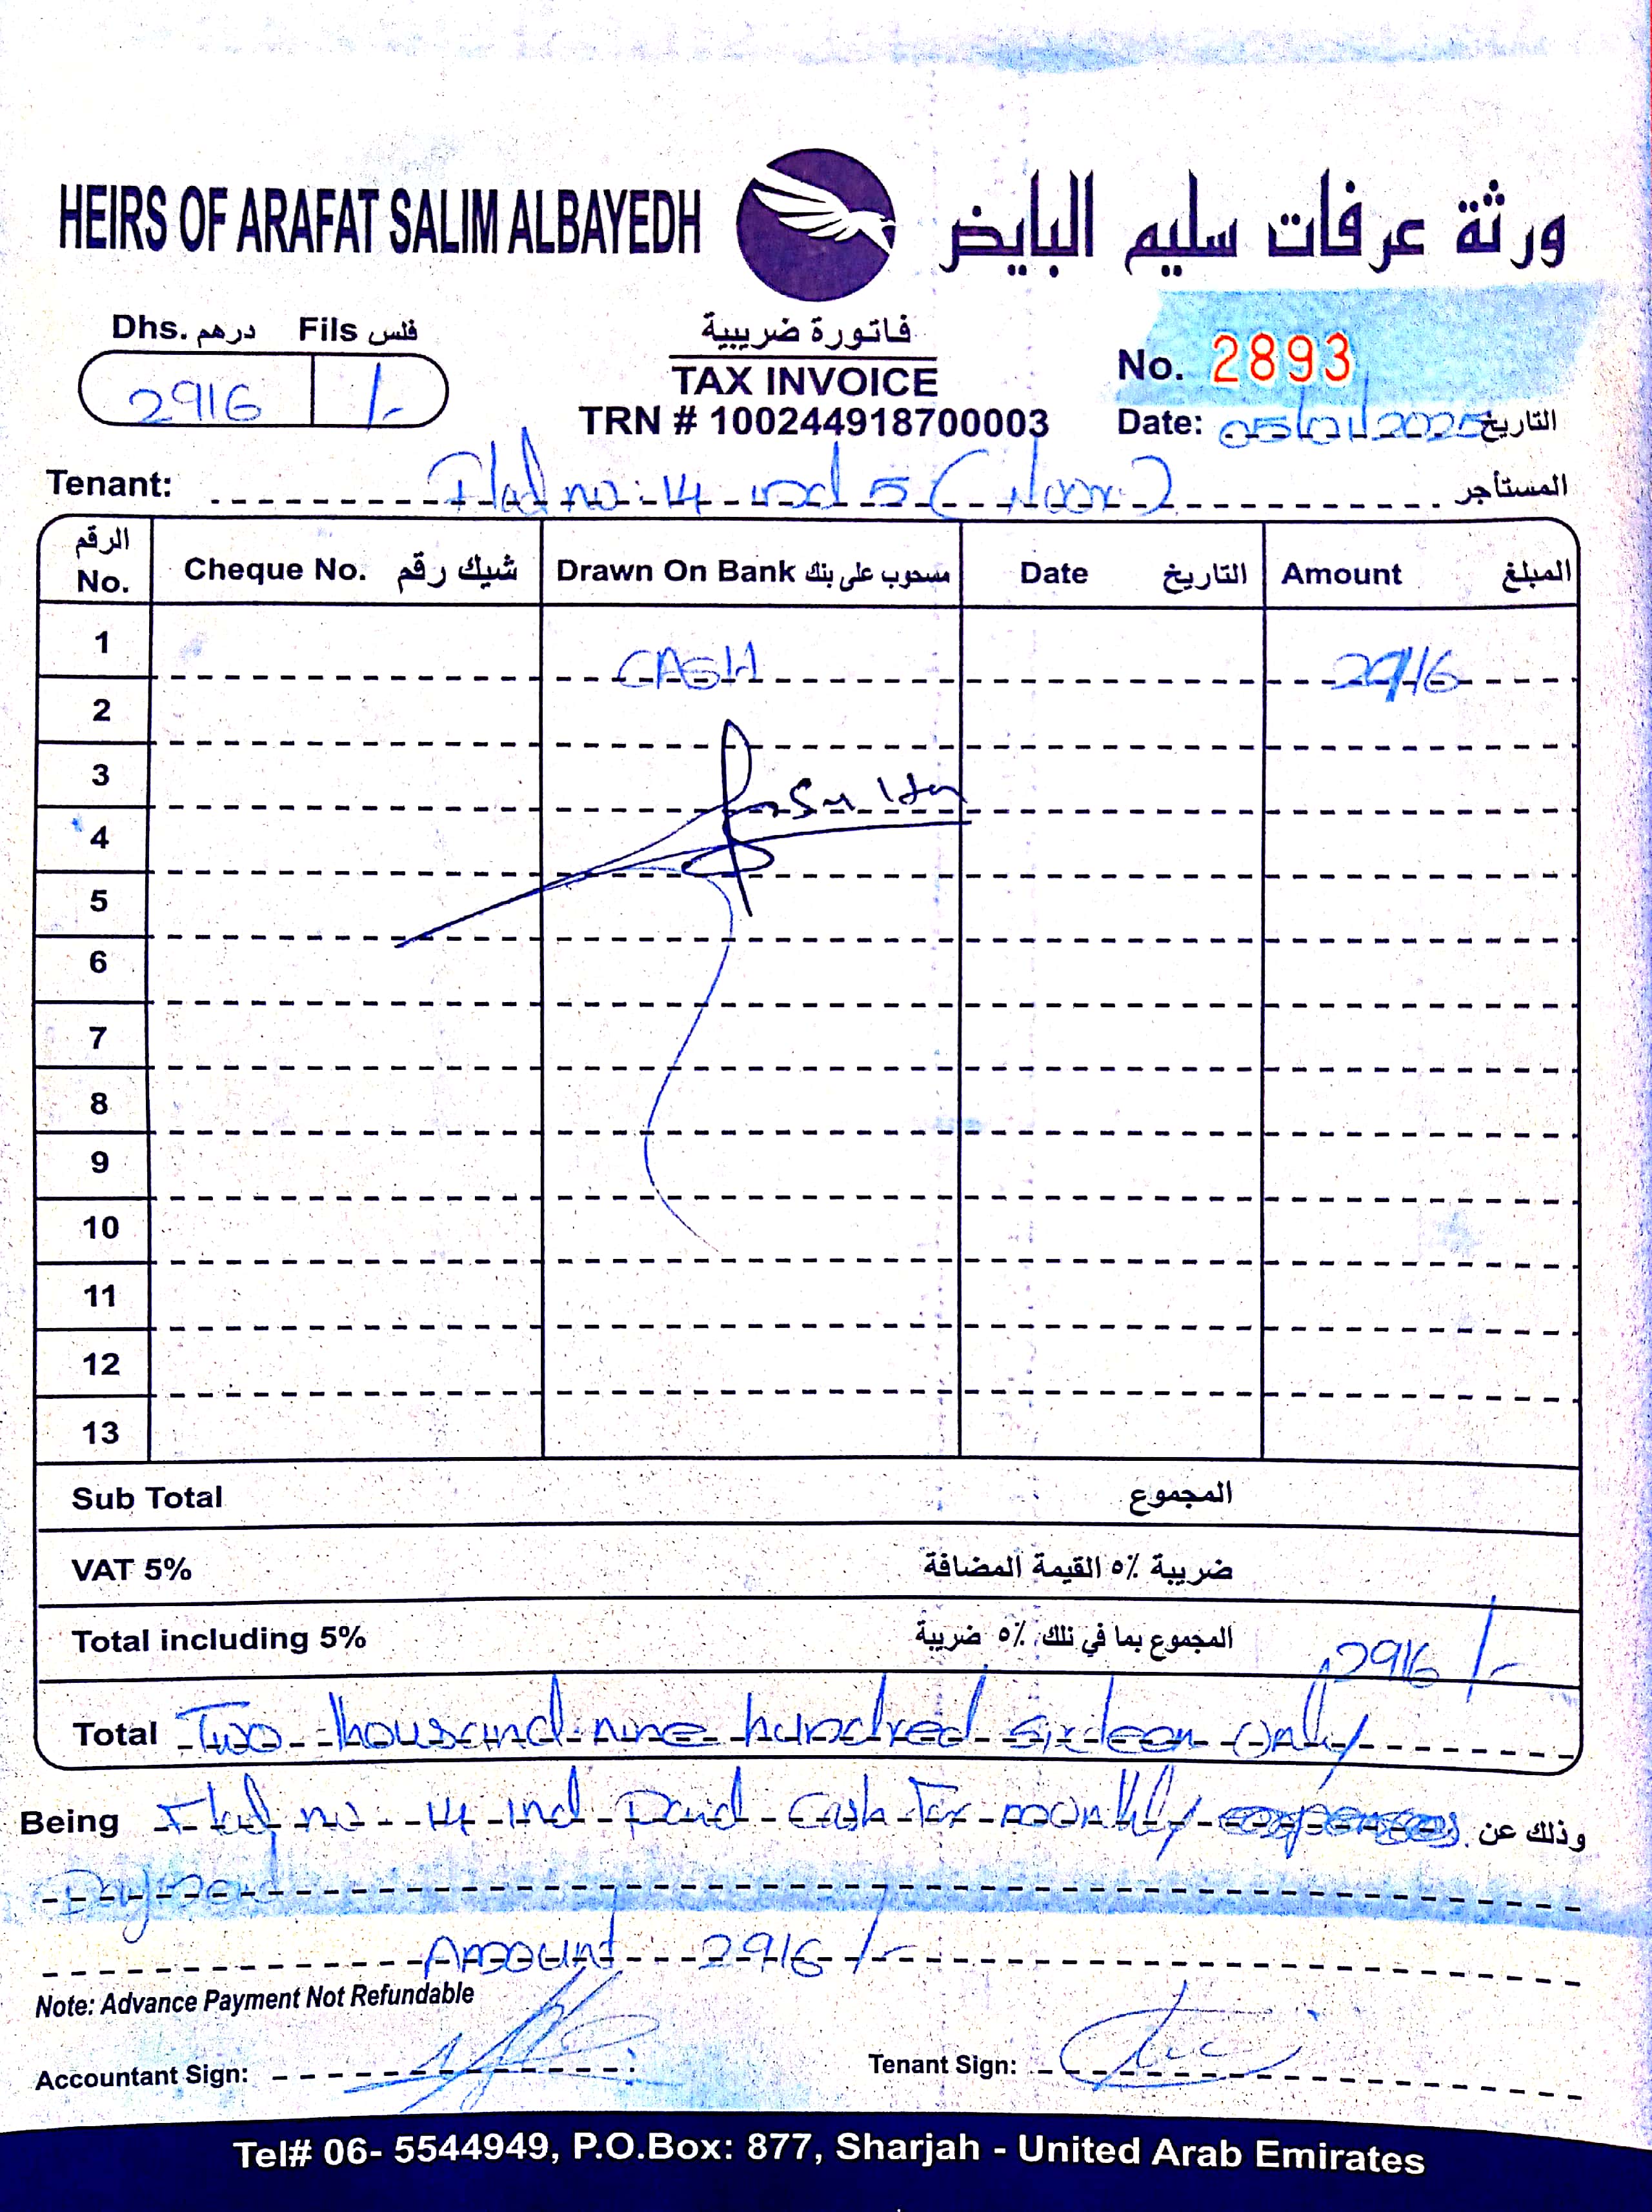 HEIRS OF ARAFAT SALIM ALBAYEDH ورثة عرفات سليم البايض
Dhs. درهم Fils فلس
2916 /-
فاتورة ضريبية
TAX INVOICE
TRN # 100244918700003
No. 2893
Date: 05/01/2025 التاريخ
Tenant: Flat no: 14 ind 5 (Noor) المستأجر
الرقم No. Cheque No. شيك رقم Drawn On Bank مسحوب على بنك Date التاريخ Amount المبلغ
1 CASH 2916
2
3
4
5
6
7
8
9
10
11
12
13
Sub Total المجموع
VAT 5% ضريبة ٥٪ القيمة المضافة
Total including 5% المجموع بما في ذلك ٥٪ ضريبة 2916/-
Total Two thousand nine hundred sixteen only
Being Flat no 14 ind Paid Cash For monthly وذلك عن
Payment
Amount 2916/-
Note: Advance Payment Not Refundable
Accountant Sign: Tenant Sign:
Tel# 06- 5544949, P.O.Box: 877, Sharjah - United Arab Emirates